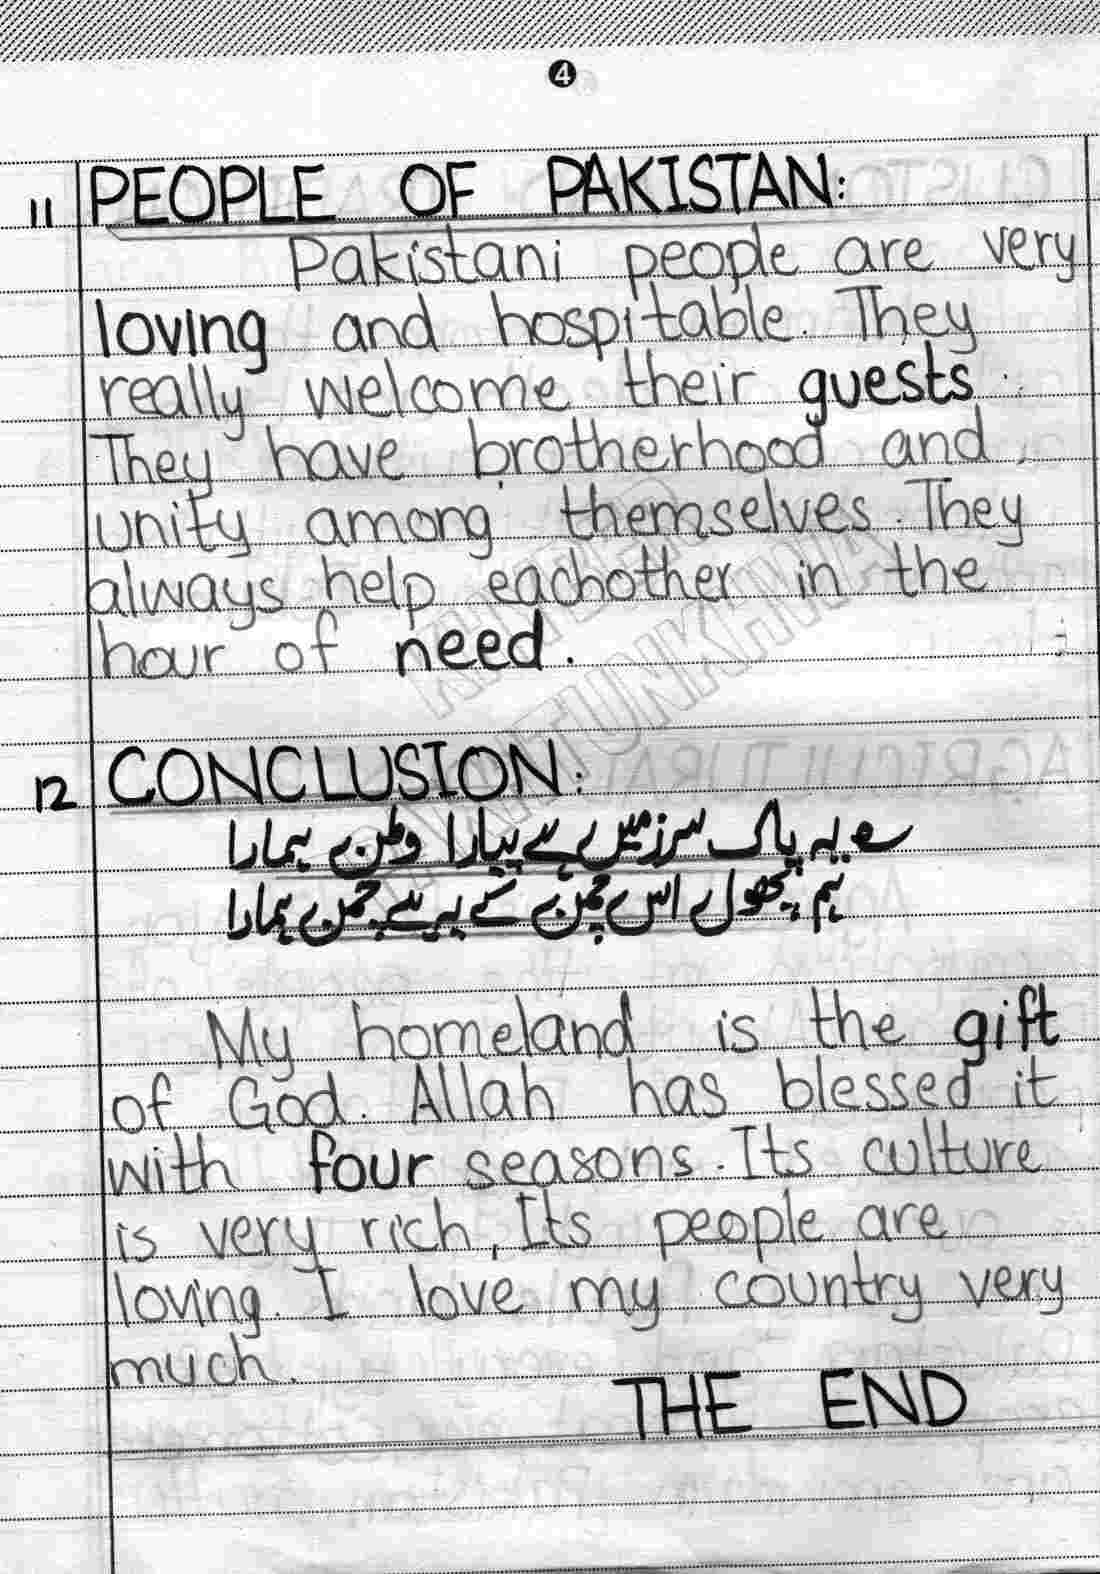 4
11 PEOPLE OF PAKISTAN:
Pakistani people are very
loving and hospitable. They
really welcome their guests.
They have brotherhood and
unity among themselves. They
always help eachother in the
hour of need.
KHYBER
PAKHTUNKHWA
12 CONCLUSION:
یہ پاک سرزمیں ہے پیارا وطن ہمارا
ہم پھول اس چمن کے یہ ہے چمن ہمارا
My homeland is the gift
of God. Allah has blessed it
with four seasons. Its culture
is very rich, Its people are
loving. I love my country very
much.
THE END